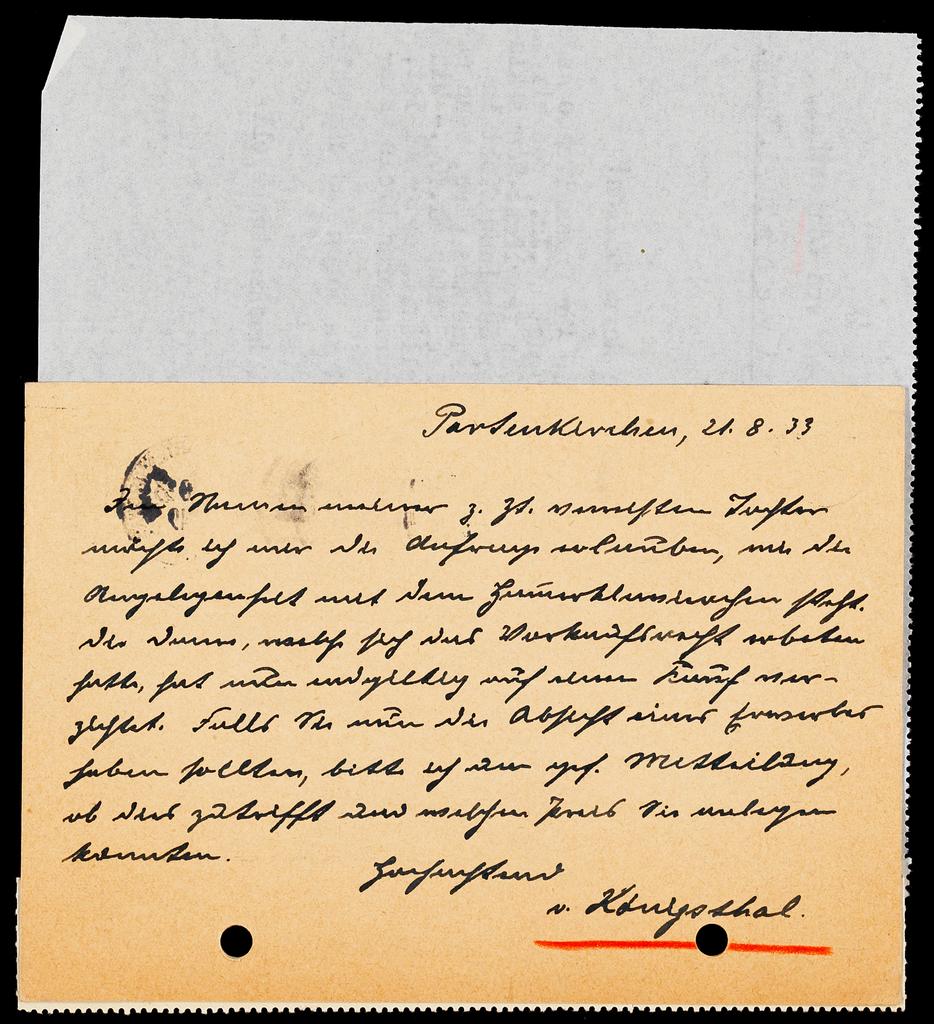 Partenkirchen, 21. 8. 33
Im Namen meiner z. Zt. verreisten Tochter
möchte ich mir die Anfrage erlauben, wie die
Angelegenheit mit dem steht.
die Dame, welche sich das Vorkaufsrecht erbeten
hatte, hat nun endgiltig auf einen Kauf ver-
zichtet. Falls Sie nun die Absicht eines Erwerbes
haben sollten, bitte ich um gef. Mitteilung,
ob dies zutrifft und welchen Preis Sie anlegen
könnten.
Hochachtend
v. Königsthal.